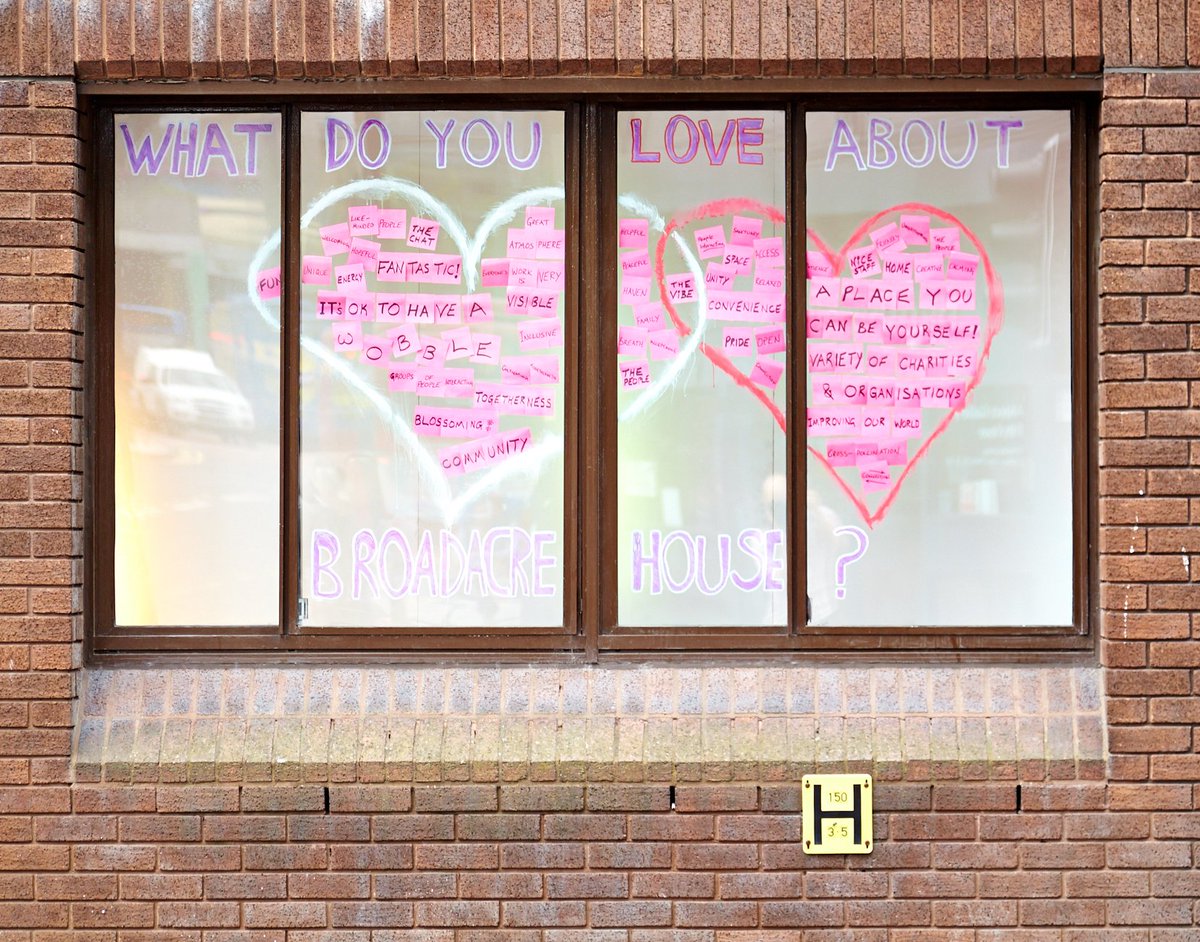 WHAT DO YOU LOVE ABOUT
LIKE-MINDED
PEOPLE
THE CHAT
WELCOMING
HOPEFUL
FANTASTIC!
FUN
UNIQUE
ENERGY
IT'S OK TO HAVE A
WOBBLE
GROUPS OF PEOPLE INTERACTING
TOGETHERNESS
BLOSSOMING
COMMUNITY
GREAT
ATMOSPHERE
WORK IS VERY
VISIBLE
INCLUSIVE
HELPFUL
PEACEFUL
HAVEN
FAMILY
BREATH
THE PEOPLE
THE VIBE
PEOPLE INTERACTING
SANCTUARY
SPACE
ACCESS
UNITY
RELAXED
CONVENIENCE
PRIDE
OPEN
FRIENDLY
THE PEOPLE
NICE STAFF
HOME
CREATIVE
A PLACE YOU
CAN BE YOURSELF!
VARIETY OF CHARITIES
& ORGANISATIONS
IMPROVING OUR WORLD
BROADACRE HOUSE?
H
150
3.5